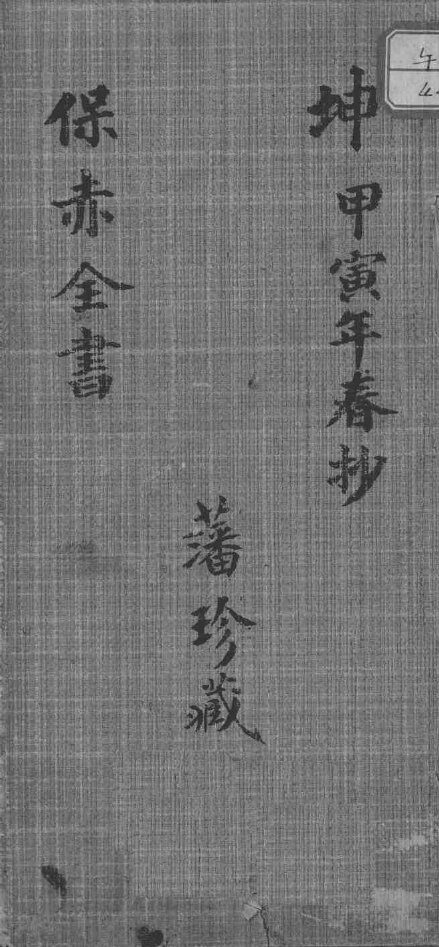 坤 甲寅年春抄
藩珍藏
保赤全書